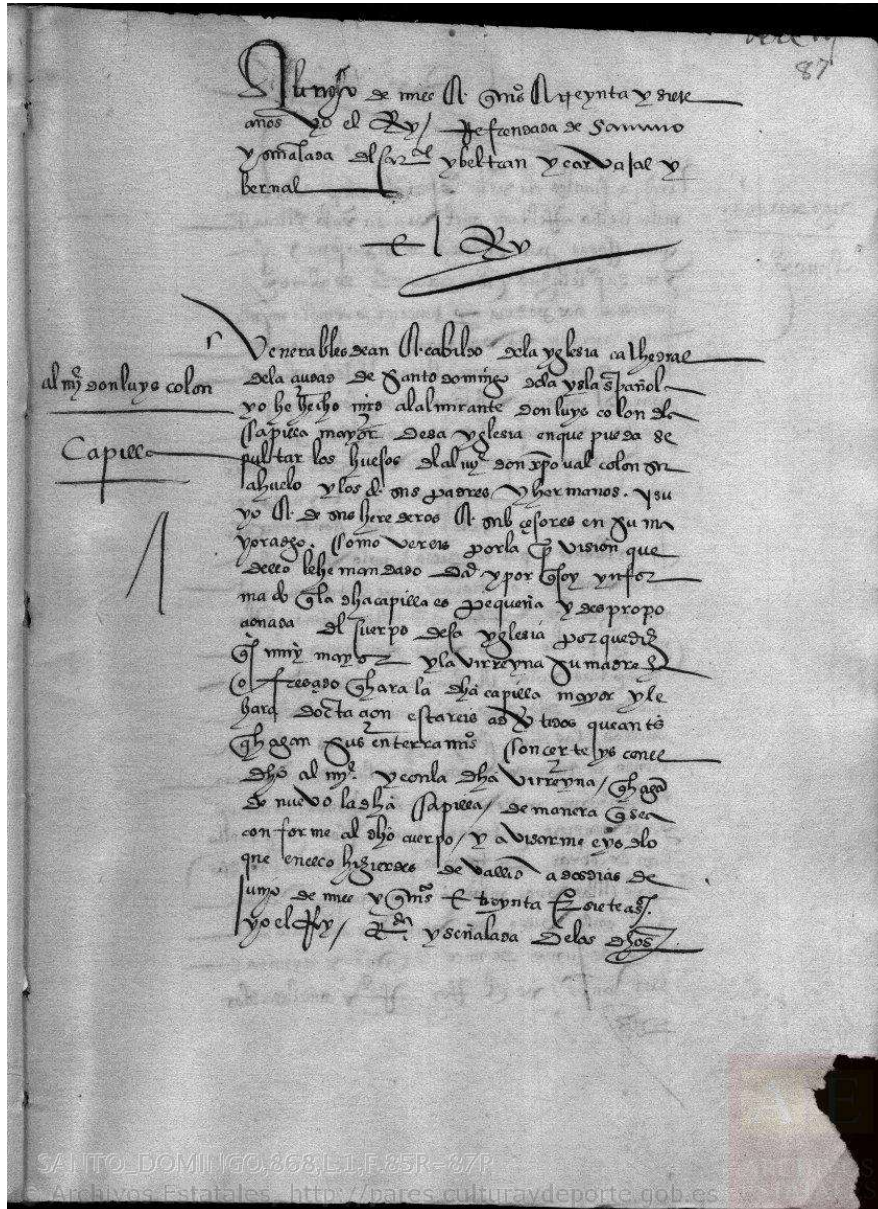 87
de mill e quis e treynta y siete
años yo el Rey / Refrendada de Samano
y señalada del car.al y beltran y carvajal y
bernal
El Rey
Venerables dean e cabildo de la yglesia cathedral
al almy.e don luys colon
de la ciudad de Santo domingo de la ysla española
yo he hecho mrd al almirante don luys colon de la
capilla mayor desa yglesia en que pueda se
Capilla
pultar los huesos del almy.e don xpoval colon su
ahuelo y los de sus padres y hermanos. y su
yo e de sus herederos e subcesores en su ma
yoradgo. como vereis por la provision que
dello le he mandado dar y por que soy ynfor
mado que la dha capilla es pequeña y despropo
cionada del cuerpo desa yglesia porque diz
que es muy mayor y la virreyna su madre se
ofrescido que hara la dha capilla mayor y le
hara doctacion estareis advertidos que antes
que hagan sus enterramis concerteys con el
dho almy.e y con la dha virreyna / que haga
de nuevo la dha capilla / de manera que sea
conforme al dho cuerpo / y avisarme eys de lo
que en ello hizierdes de vallid a dos dias de
junio de mill y quis e treynta e siete as.
yo el Rey / R.da y señalada de los dhos
SANTO_DOMINGO,868,L.1,F.85R-87R
Archivos Estatales, http://pares.culturaydeporte.gob.es